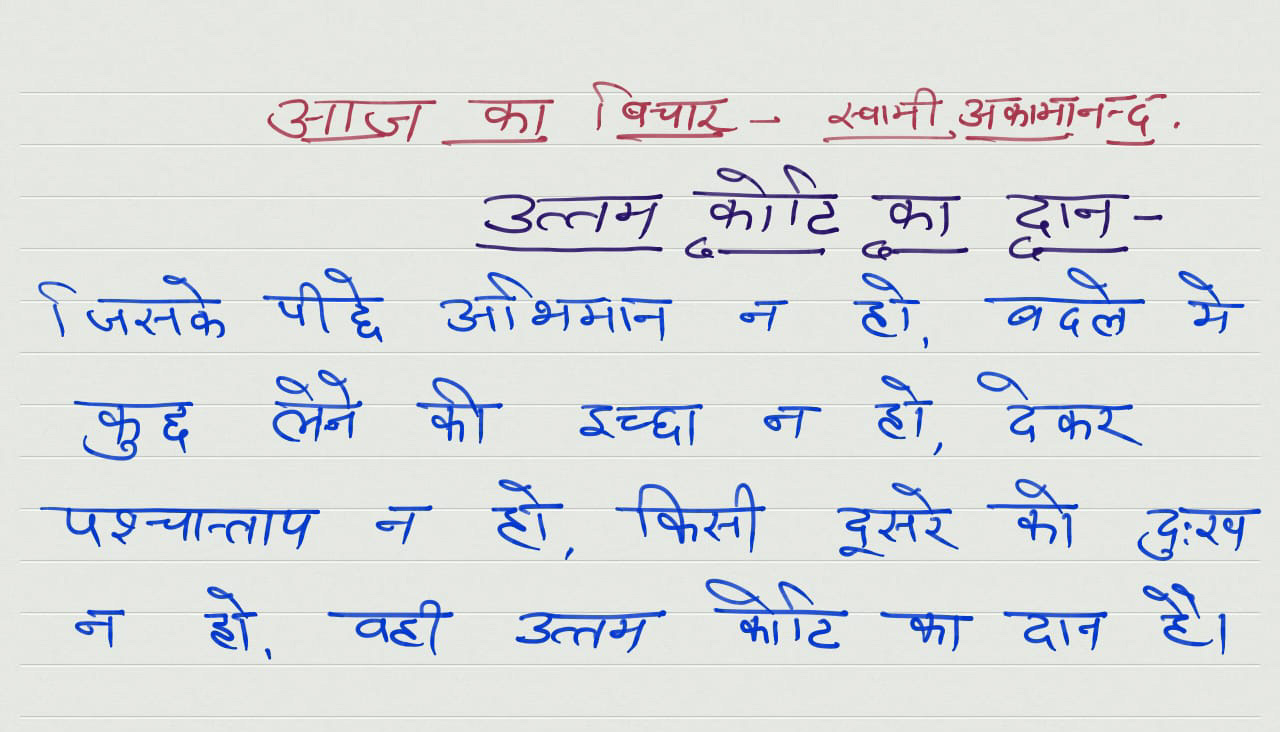 आज का विचार - स्वामी अकामानन्द.
उत्तम कोटि का दान -
जिसके पीछे अभिमान न हो, बदले मे
कुछ लेने की इच्छा न हो, देकर
पश्चात्ताप न हो, किसी दूसरे को दुःख
न हो, वही उत्तम कोटि का दान है।